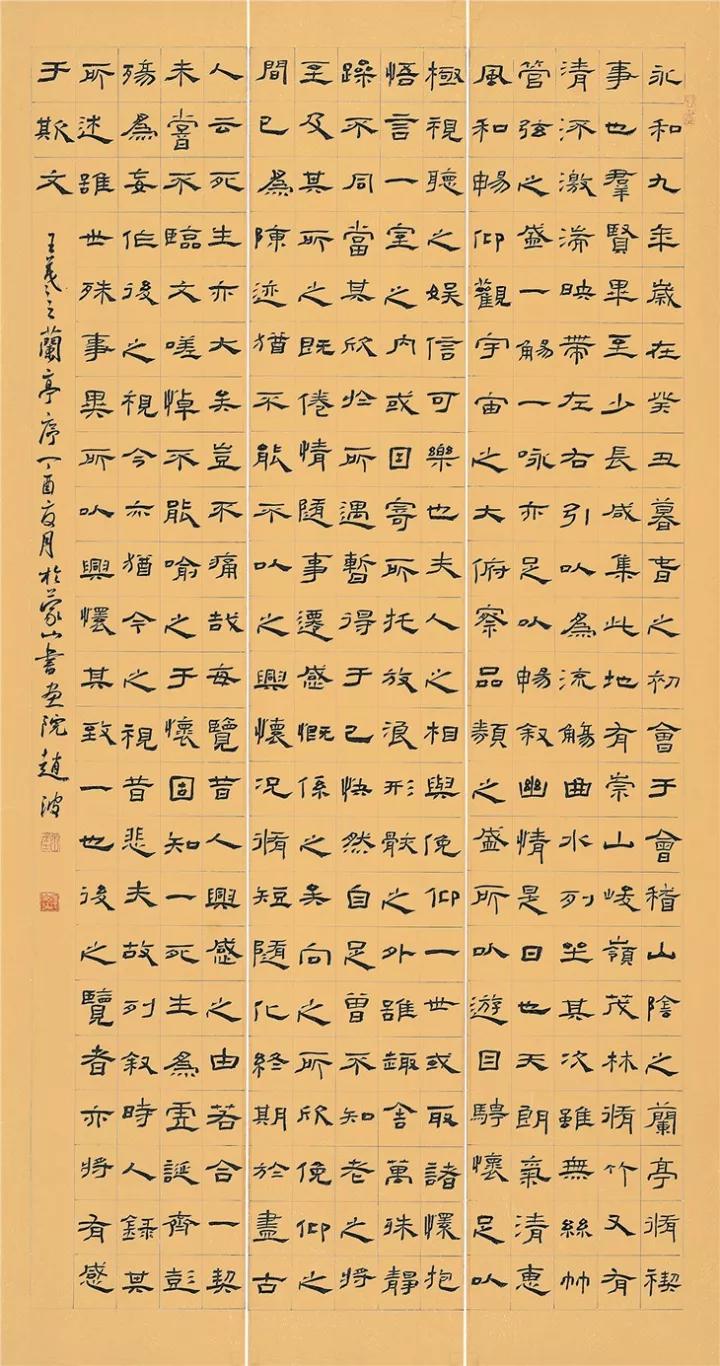 永和九年歲在癸丑暮春之初會于會稽山陰之蘭亭脩禊
事也羣賢畢至少長咸集此地有崇山峻嶺茂林脩竹又有
清流激湍映帶左右引以為流觴曲水列坐其次雖無絲竹
管弦之盛一觴一咏亦足以暢叙幽情是日也天朗氣清惠
風和暢仰觀宇宙之大俯察品類之盛所以遊目騁懷足以
極視聽之娛信可樂也夫人之相與俛仰一世或取諸懷抱
悟言一室之内或因寄所托放浪形骸之外雖趣舍萬殊靜
躁不同當其欣於所遇暫得于己快然自足曾不知老之將
至及其所之既倦情隨事遷感慨係之矣向之所欣俛仰之
間已為陳迹猶不能不以之興懷況脩短隨化終期於盡古
人云死生亦大矣豈不痛哉每覽昔人興感之由若合一契
未嘗不臨文嗟悼不能喻之于懷固知一死生為虛誕齊彭
殤為妄作後之視今亦猶今之視昔悲夫故列叙時人錄其
所述雖世殊事異所以興懷其致一也後之覽者亦將有感
于斯文
王羲之蘭亭序丁酉夏月於蒙山書画院趙波